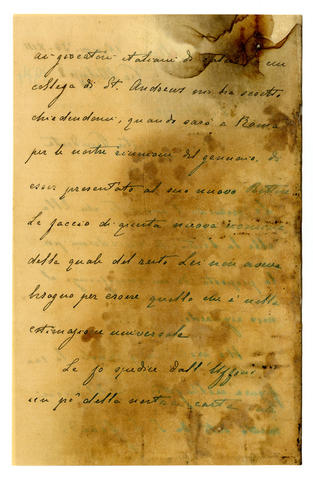 ai giocatori italiani di calcio. Un
collega di St. Andrews mi ha scritto
chiedendomi, quando sarò a Roma
per le nostre riunioni del gennaio, di
esser presentato al suo nuovo
Le faccio di questa nuova
della quale del resto Lei non aveva
bisogno per essere quello che è nella
estimazione universale
Le fo spedire dall'
un po' della nostra carta